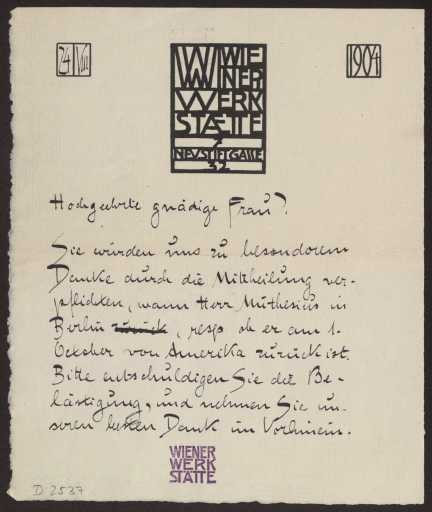 24 VIII
1904
WIE
NER
WERK
STÆTTE
7
NEUSTIFTGASSE
32
Hochgeehrte gnädige Frau!
Sie würden uns zu besonderem
Danke durch die Mittheilung ver-
pflichten, wann Herr Muthesius in
Berlin zurück, resp. ob er am 1.
October von Amerika zurück ist.
Bitte entschuldigen Sie die Be-
lästigung, und nehmen Sie un-
seren besten Dank im Vorhinein.
WIENER
WERK
STÄTTE
D 2537